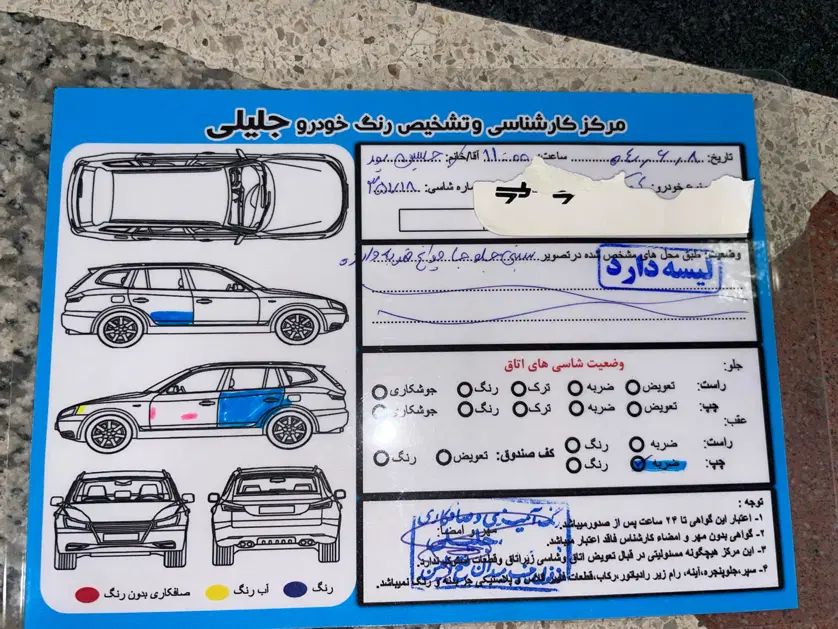 مرکز کارشناسی و تشخیص رنگ خودرو جلیلی
تاریخ: ساعت: ۱۱:۰۰ آقا/خانم:
خودرو: شاسی: ۳۵۱۷۱۸
وضعیت: طبق محل های مشخص شده در تصویر
لیسه دارد
وضعیت شاسی های اتاق
جلو:
راست: تعویض ضربه ترک رنگ جوشکاری
چپ: تعویض ضربه ترک رنگ جوشکاری
عقب:
راست: ضربه رنگ
چپ: ضربه رنگ کف صندوق: تعویض رنگ
توجه :
۱- اعتبار این گواهی تا ۲۴ ساعت پس از صدور میباشد.
۲- گواهی بدون مهر و امضاء کارشناس فاقد اعتبار میباشد. مهر و امضا:
۳- این مرکز هیچگونه مسئولیتی در قبال تعویض اتاق و شاسی زیر اتاق و قطعات ندارد.
۴- سپر، جلوپنجره، آینه، رام زیر رادیاتور، رکاب، قطعات و پلاستیکی جز بدنه و رنگ نمیباشد.
رنگ
آب رنگ
صافکاری بدون رنگ